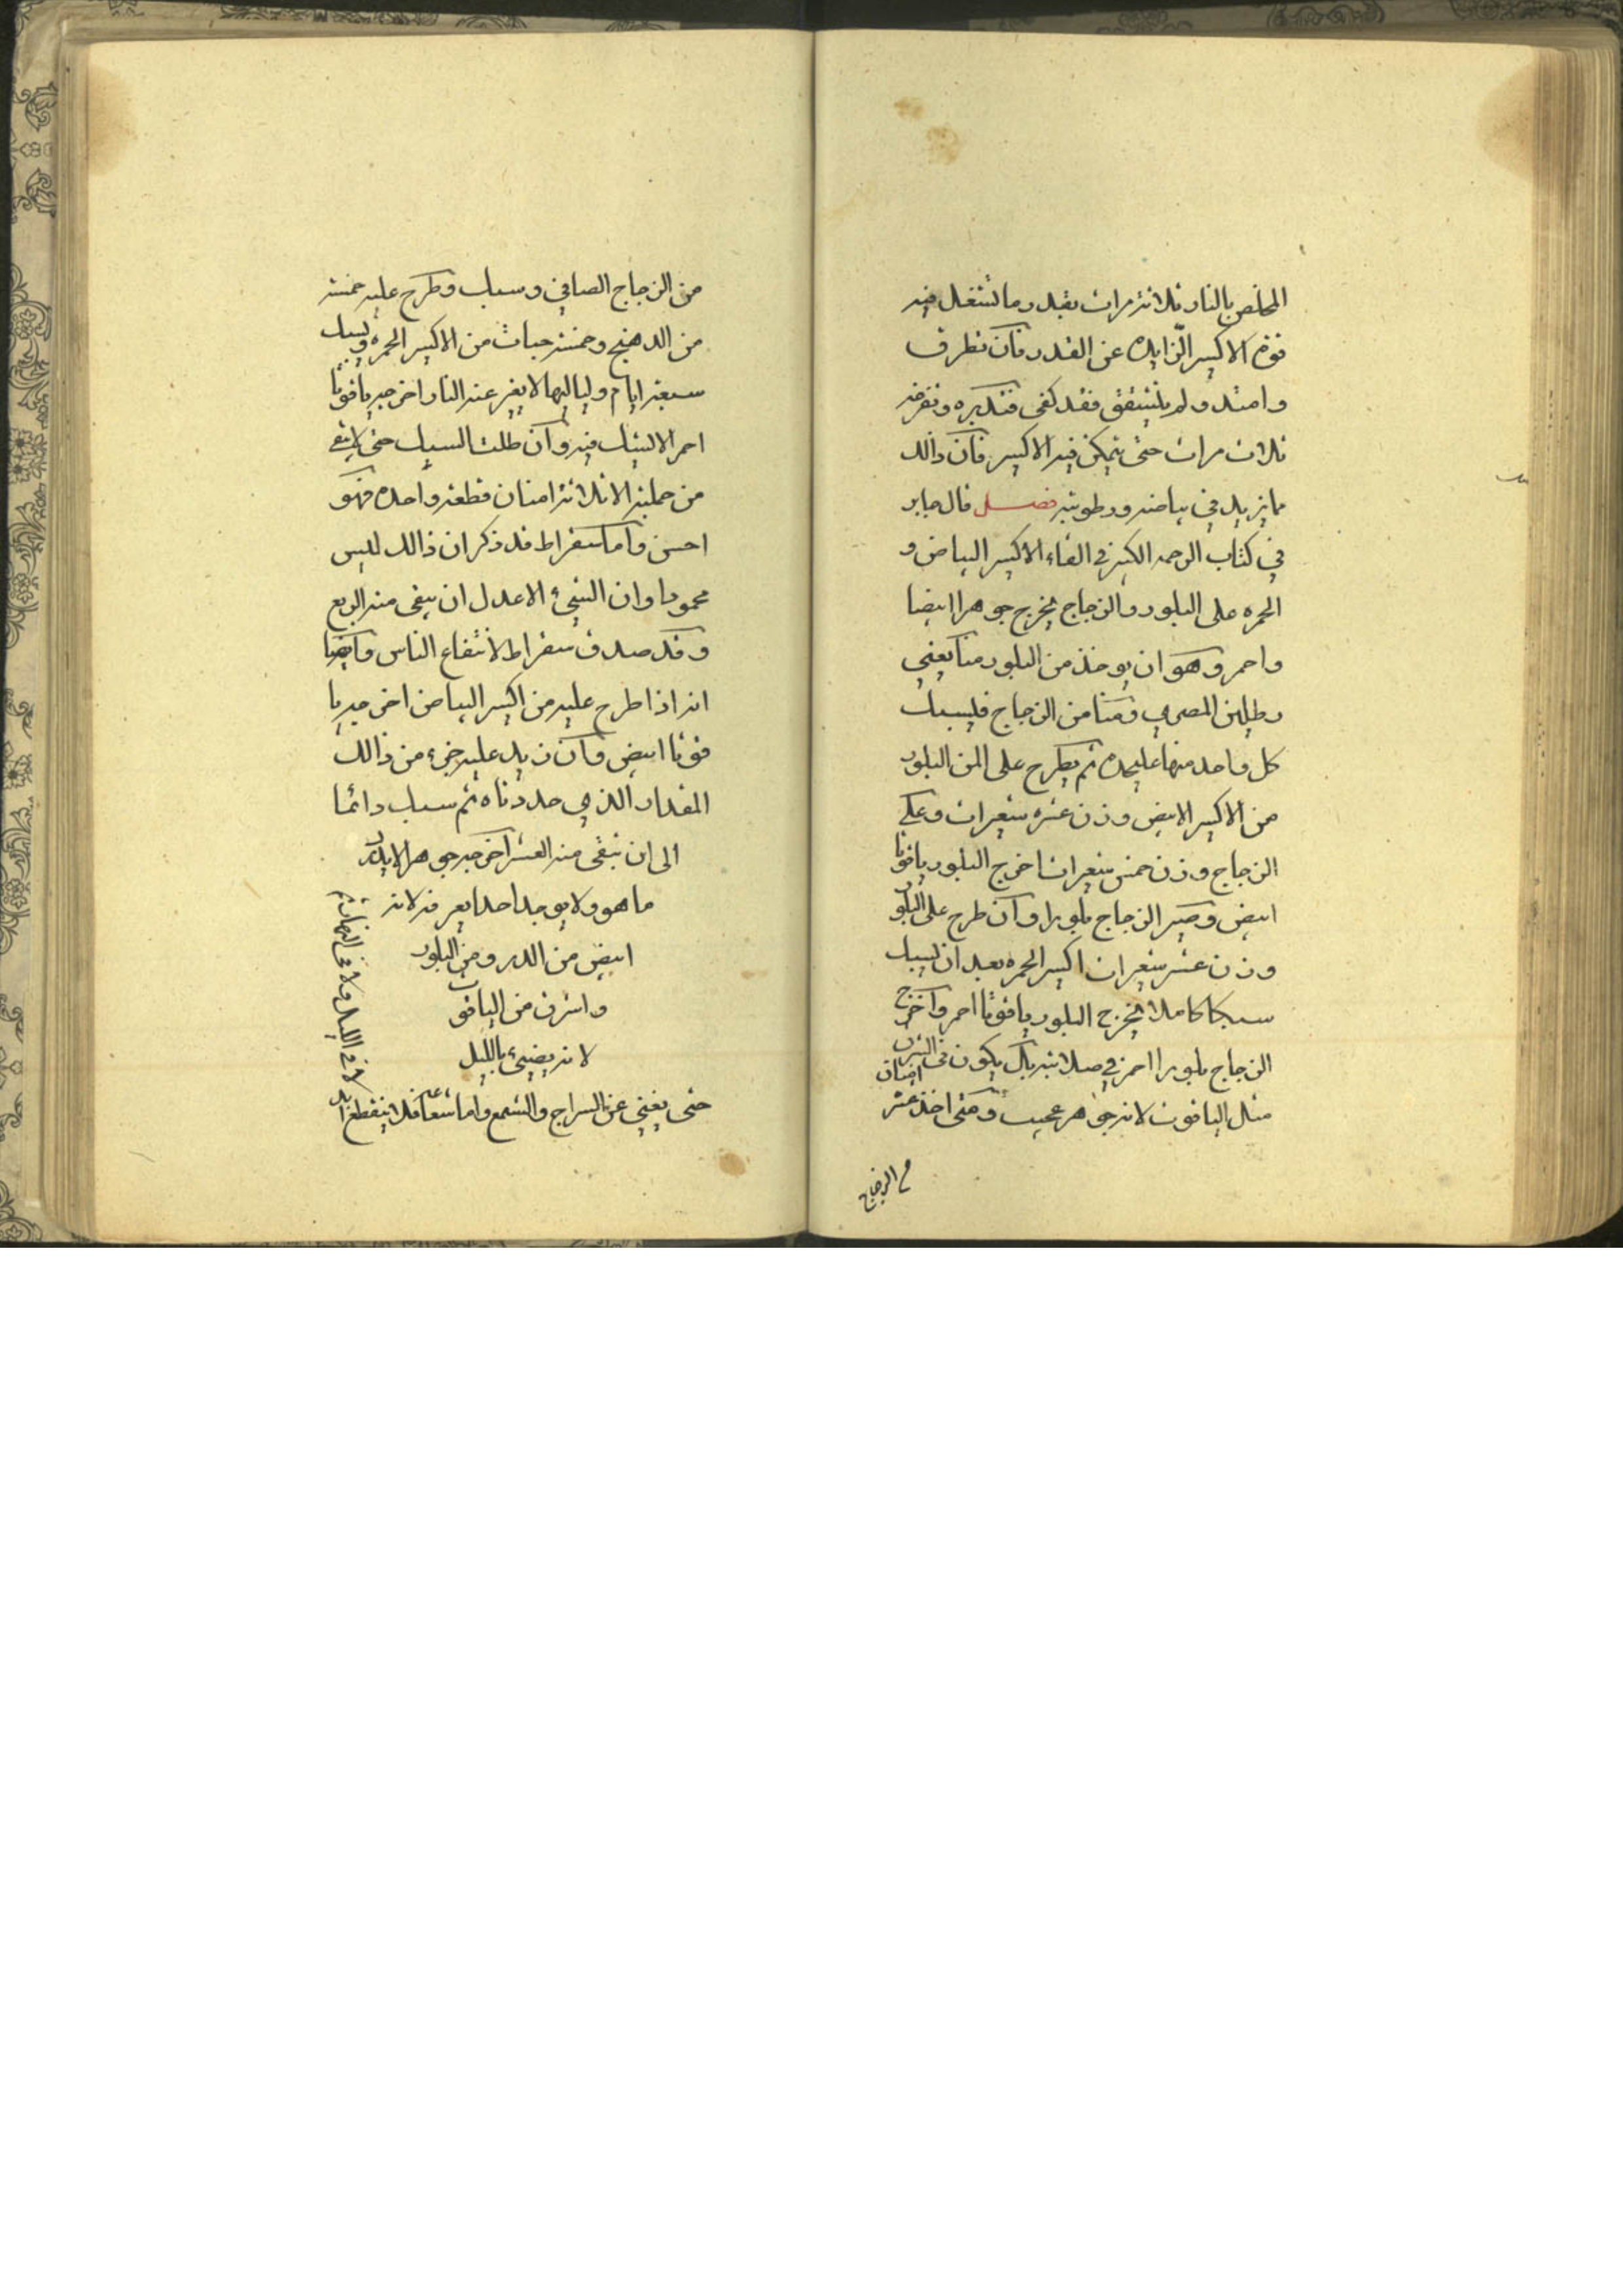 المخلص بالنار ثلاثة مرات بقدر ما تشتغل فيه
قوة الاكسير الزايده عن القدر فان تطرق
وامتد ولم يتشقق فقد كفى فتدبره وتفرغه
ثلاث مرات حتى يتمكن فيه الاكسير فان ذالك
مما يزيد في بياضه ورطوبته فصل قال جابر
في كتاب الرحمه الكبير في القاء الاكسير البياض و
الحمره على البلور والزجاج يخرج جوهرا ابيضا
واحمر وهو ان يوخذ من البلور منا يعني
رطلين المصري ومنا من الزجاج فليسبك
كل واحد منها عليحده ثم يطرح على المن البلور
من الاكسير الابيض وزن عشره شعيرات وعلى
الزجاج وزن خمس شعيرات اخرج البلور ياقوتا
ابيض وصير الزجاج بلورا وان طرح على البلور
وزن عشر شعيرات اكسير الحمره بعد ان يسبك
سبكا كاملا فيخرج البلور ياقوتا احمر واخرج
الزجاج بلورا احمر في صلابته بل يكون في الشرف
مثل الياقوت لانه جوهر عجيب ومتى اخذ عشر
امنان
من الزجاج
من الزجاج الصافي وسبك وطرح عليه خمسه
من الدهنج وخمسه حبات من الاكسير الحمره ويسبك
سبعة ايام ولياليها لا يفتر عنه النار اخرجه ياقوتا
احمر الا لشك فيه وان طلت السبك حتى لا يبقى
من جملته الا ثلاثة امنان قطعة واحده فهو
احسن واما سقراط قد ذكر ان ذالك ليس
محمودا وان الشيء الاعدل ان يبقى منه الربع
وقد صدق سقراط لانتفاع الناس وايضا
انه اذا طرح عليه من اكسير البياض اخرجه يا
قوتا ابيض وان زيد عليه جزء من ذالك
المقدار الذي حددناه ثم سبك دائما
الى ان تبقى منه العشر اخرجه جوهر الا يدر
ما هو ولا يوجد احدا يعرفه لانه
ابيض من الدر ومن البلور
واشرف من الياقوت
لانه يضيء بالليل
حتى يغني عن السراج والشمع واما شعاعه فلا ينقطع ابدا
لا في الليل ولا في النهار تم